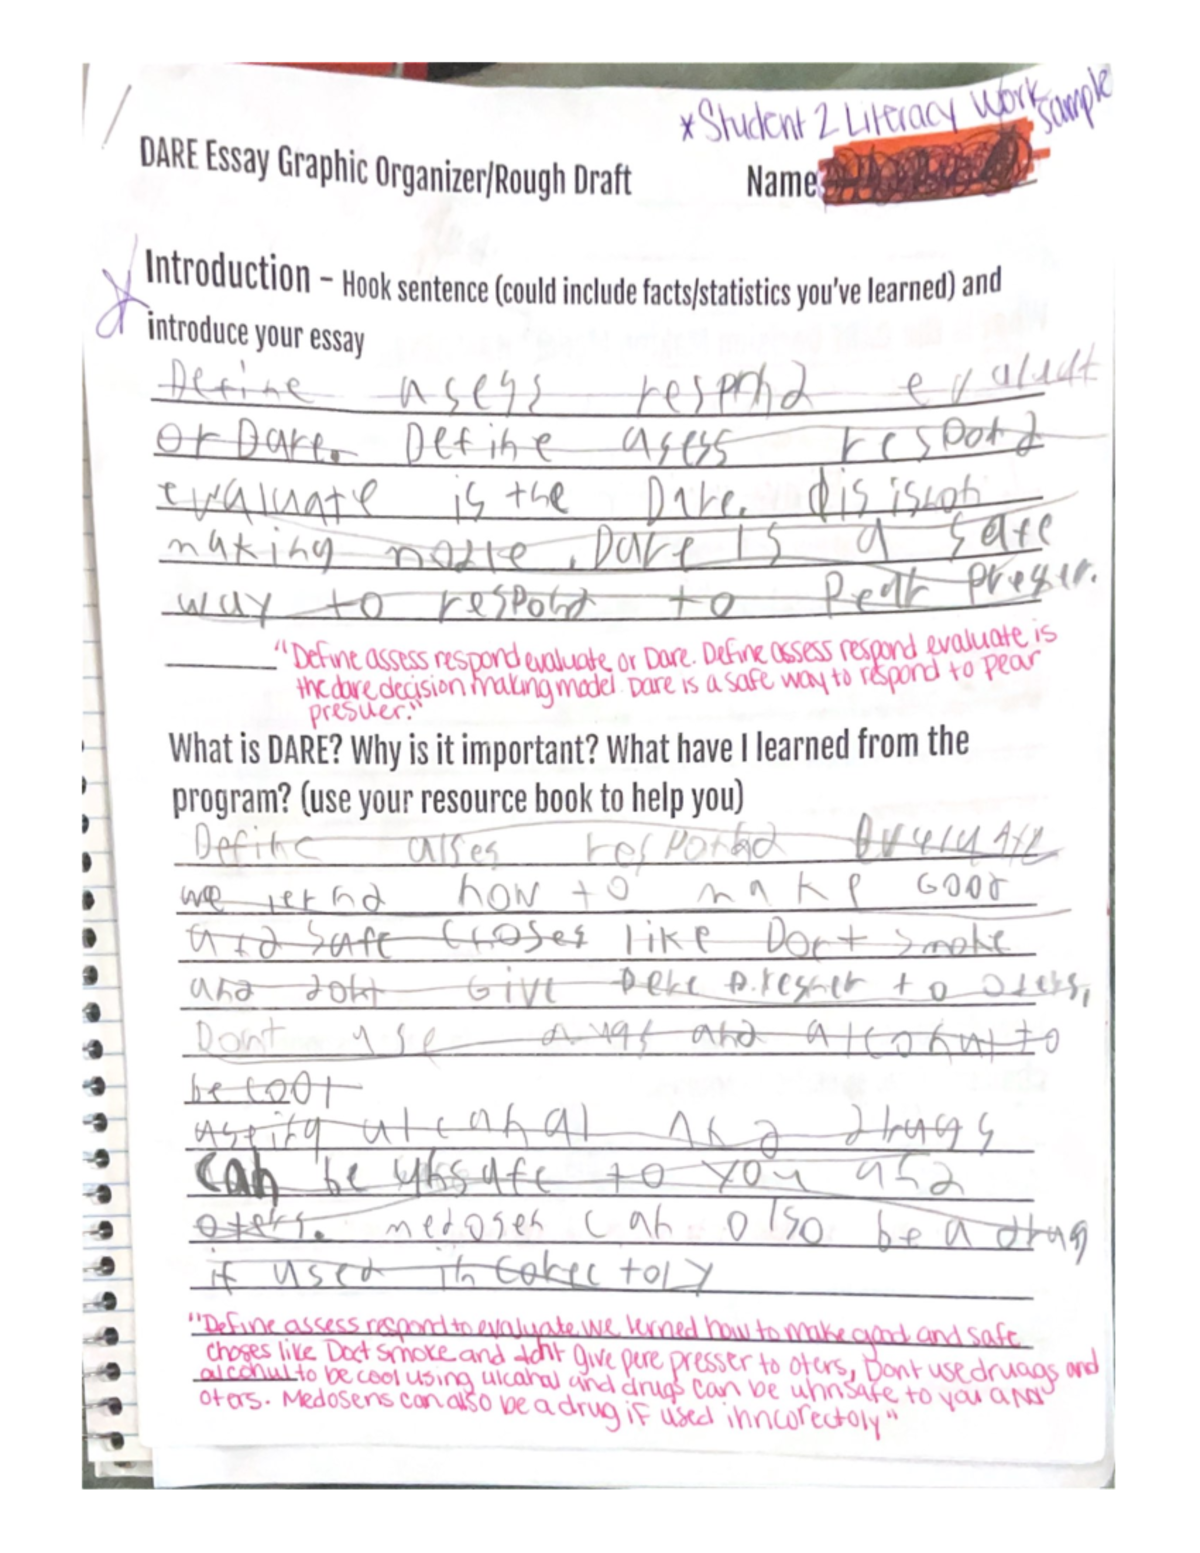 *Student 2 Literacy Work Sample
DARE Essay Graphic Organizer/Rough Draft Name
Introduction – Hook sentence (could include facts/statistics you've learned) and
introduce your essay
Define asess respond evaluat
or Dare. Define asess respond
evaluate is the Dare.
making Dare is a safe
way to respond to Pear preser.
"Define assess respond evaluate or Dare. Define assess respond evaluate is
the dare decision making model. Dare is a safe way to respond to pear
presuer."
What is DARE? Why is it important? What have I learned from the
program? (use your resource book to help you)
Define asses respond
we lernd how to make Good
and safe choses like Dont smoke
and dont Give pere presser to oters,
Dont use drugs and alcohul to
be cool
using alcahal and drugs
can be unsafe to you and
oters. medosen can olso be a drug
if used incorectoly
"Define assess respond to evaluate we lerned how to make good and safe
choses like Doct smoke and dont give pere presser to oters, Dont use druags and
alcohul to be cool using ulcahal and drugs can be uhnsafe to you and
oters. Medosens can also be a drug if used ihncorectoly"